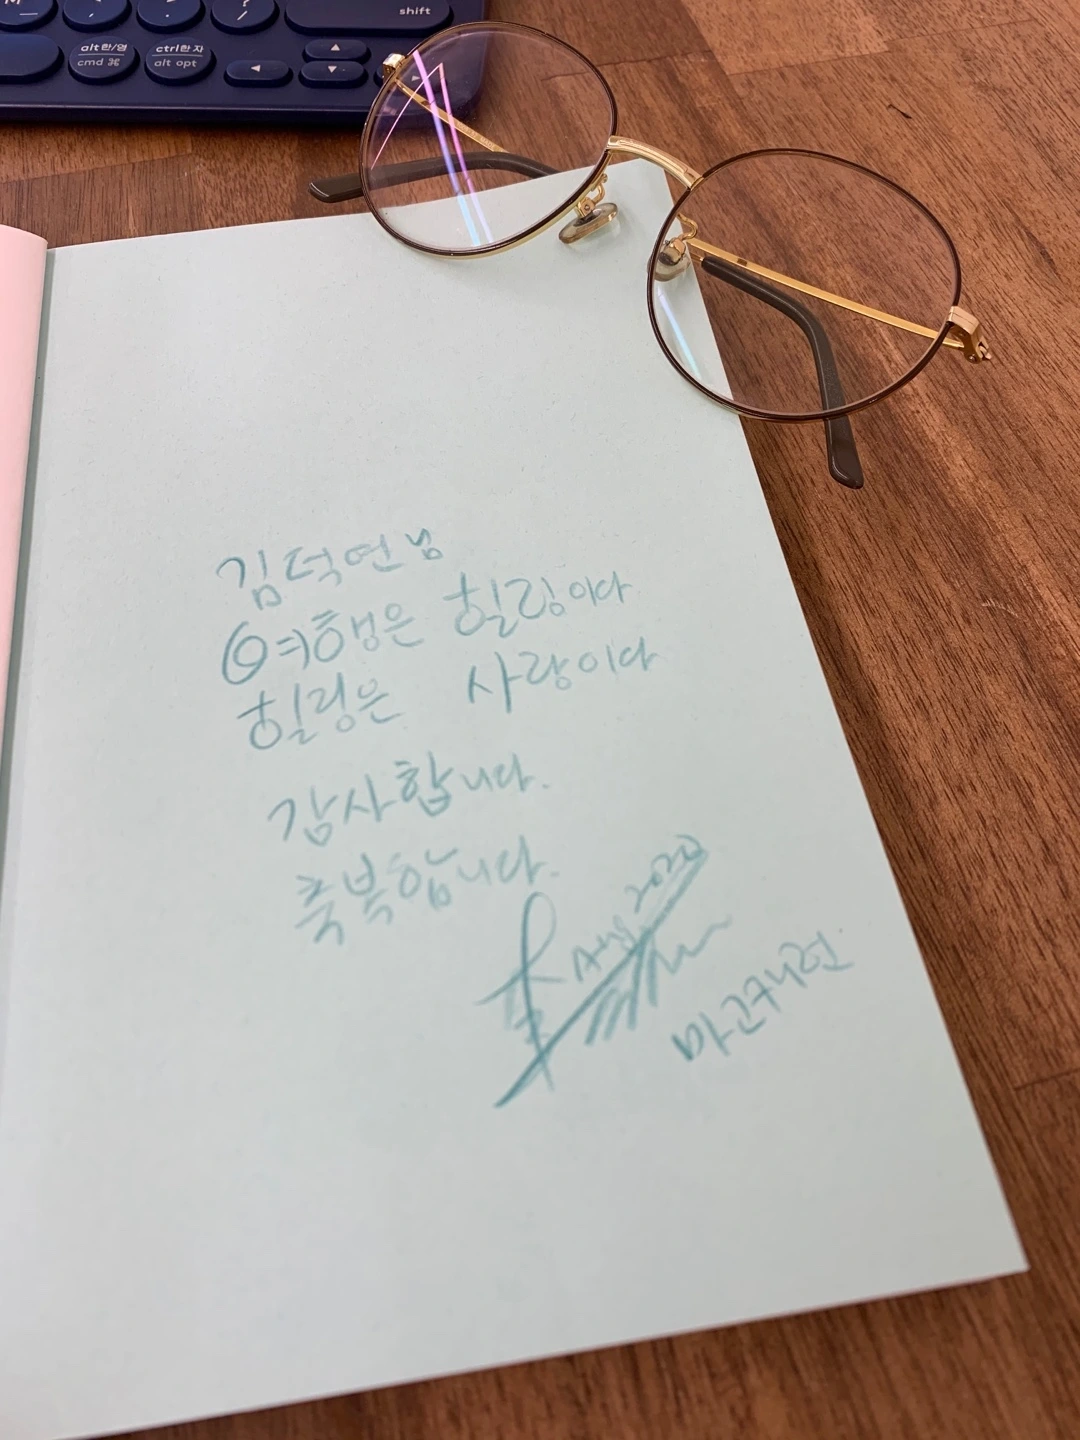 shift
alt 한/영
cmd ⌘
ctrl 한자
alt opt
김덕연님
여행은 힐링이다
힐링은 사랑이다
감사합니다.
축복합니다.
Aug. 2020
마고캐런